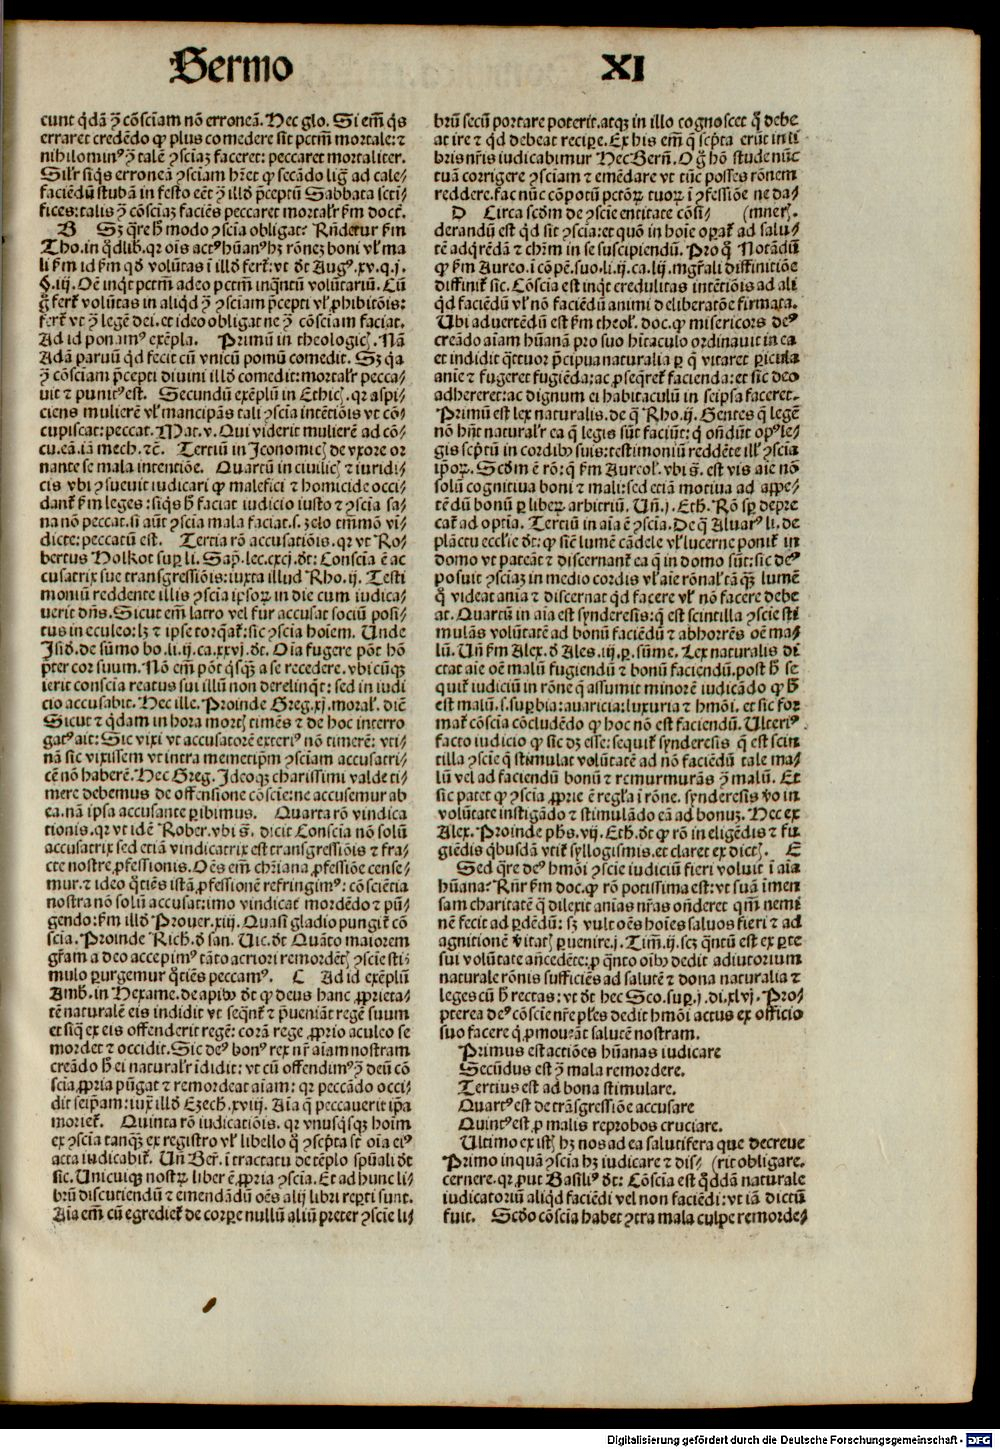 Sermo XI
cunt qdã ɔ̃ cõsciam nõ erroneã. Hec glo. Si em̃ qs
erraret credẽdo ꝙ plus comedere sit pctm̃ mortale: ⁊
nihilominꝰ ɔ̃ talẽ ꝯsciaʒ faceret: peccaret mortaliter.
Silr siqs erroneã ꝯsciam hẽt ꝙ secãdo ligͣ ad cale⸗
faciẽdũ stubã in festo eẽt ɔ̃ illđ p̃ceptũ Sabbata scti⸗
fices: talis ɔ̃ cõsciaʒ faciẽs peccaret mortalr ẜm doct.
B Sʒ q̃re hͦ modo ꝯscia obligat? Rñdetur ẜm
Tho. in qdlib. qr ois actꝰ hũanꝰ hʒ rõneʒ boni vl ma
li ẜm id ẜm qđ volũtas ĩ illđ fert: vt đt Augꝰ. xv. q. j.
§. iij. Oẽ inqt pctm̃ adeo pctm̃ inqntũ volũtariũ. Cũ
g̃ fert volũtas in aliqđ ɔ̃ ꝯsciam p̃cepti vl ꝓhibitõis:
fert vt ɔ̃ legẽ dei. et ideo obligat ne ɔ̃ cõsciam faciat.
Ad id ponamꝰ exẽpla. Primũ in theologicꝭ. Nã
Adã paruũ qđ fecit cũ vnicũ pomũ comedit. Sʒ qa
ɔ̃ cõsciam p̃cepti diuini illđ comedit: mortalr pecca⸗
uit ⁊ punitꝰ est. Secundũ exẽplũ in Ethicꝭ. qr aspi⸗
ciens mulierẽ vl mancipãs tali ꝯscia intẽtiõis vt cõ⸗
cupiscat: peccat. Mat. v. Qui viderit mulierẽ ad cõ⸗
cu. eã. iã mech. ⁊c̃. Tertiũ in Iconomicꝭ de vxore or
nante se mala intentiõe. Quartũ in ciuilicꝭ ⁊ iuridi⸗
cis vbi ꝯsueuit iudicari ꝙ malefici ⁊ homicide occi⸗
dant ẜm leges: siqs hͦ faciat iudicio iusto ⁊ ꝯscia sa⸗
na nõ peccat. si aũt ꝯscia mala faciat. s. zelo tm̃mõ vi⸗
dicte: peccatũ est. Tertia rõ accusatiõis. qr vt Ro⸗
bertus Holkot suꝑ li. Sap. lec. cxcj. đt: Conscia ẽ ac
cusatrix sue transgressiõis: iuxta illud Rho. ij. Testi
moniũ reddente illis ꝯscia ipsoꝝ in die cum iudica⸗
uerit dñs. Sicut em̃ latro vel fur accusat sociũ posi⸗
tus in eculeo: lʒ ⁊ ipse torqat: sic ꝯscia hoiem. Unde
Isid. de sũmo bo. li. ij. ca. xxvj. đt. Oia fugere põt hõ
p̃ter cor suum. Nõ em̃ põt qsqʒ a se recedere. vbicũqʒ
ierit conscia reatus sui illũ non derelinqt: sed in iudi
cio accusabit. Hec ille. Proinde Greg. xj. moral. diẽ
Sicut ⁊ qdam in hora mortꝭ timẽs ⁊ de hoc interro
gatꝰ ait: Sic vixi vt accusatorẽ exteriꝰ nõ timerẽ: vti⸗
nã sic vixissem vt intra memetipm̃ ꝯsciam accusatri⸗
cẽ nõ haberẽ. Hec Greg. Ideoqʒ charissimi valde ti⸗
mere debemus de offensione cõscie: ne accusemur ab
ea. nã ipsa accusante ꝑibimus. Quarta rõ vindica
tionis. qr vt idẽ Rober. vbi s̃. dicit Conscia nõ solũ
accusatrix sed etiã vindicatrix est transgressiõis ⁊ fra⸗
cte nostre ꝓfessionis. Oẽs em̃ chr̃iana ꝓfessiõe cense⸗
mur. ⁊ ideo qtiẽs istã ꝓfessionẽ refringimꝰ: cõsciẽtia
nostra nõ solũ accusat: imo vindicat mordẽdo ⁊ pũ⸗
gendo: ẜm illđ Prouer. xiij. Quasi gladio pungit cõ
scia. Proinde Rich. đ san. Uic. đt Quãto maiorem
gr̃am a deo accepimꝰ tãto acriori remordẽtꝭ ꝯscie sti⸗
mulo ꝑurgemur qtiẽs peccamꝰ. C Ad id exẽplũ
Amb. in Hexame. de apibꝰ đt ꝙ deus hanc ꝓprieta⸗
tẽ naturalẽ eis indidit vt seqnt ⁊ p̃ueniãt regẽ suum
et siqͣ ex eis offenderit regẽ: corã rege ꝓprio aculeo se
mordet ⁊ occidit. Sic deꝰ bonꝰ rex nr̃ aiam nostram
creãdo hͦ ei naturalr ĩdidit: vt cũ offendimꝰ ɔ̃ deũ cõ
scia ꝓpria pũgat ⁊ remordeat aiam: qr peccãdo occi⸗
dit seip̃am: iux̃ illđ Ezech. xviij. Aĩa q̃ peccauerit ip̃a
moriet. Quinta rõ iudicatiõis. qr vnusqsqʒ hoim
ex ꝯscia tanqʒ ex registro vl libello q̃ ꝯsc̃pta st̃ oia eiꝰ
acta iudicabit. Uñ Ber. ĩ tractatu de tẽplo spũali đt
sic. Unicuiqʒ nostꝝ liber ẽ ꝓpria ꝯscia. Et ad hunc li⸗
brũ discutiendũ ⁊ emendãdũ oẽs alij libri reꝑti sunt.
Aĩa em̃ cũ egrediet de corꝑe nullũ aliũ preter ꝯscie li⸗
brũ secũ portare poterit. atqʒ in illo cognoscet q̃ debe
at ire ⁊ qđ debeat reciꝑe. Ex his em̃ q̃ sc̃pta erũt in li
bris nr̃is iudicabimur Hec Berñ. O g̃ hõ stude nũc
tuã corrigere ꝯsciam ⁊ emẽdare vt tũc posses rõnem
reddere. fac nũc cõpotũ pctõꝝ tuoꝝ ĩ ꝯfessiõe ne da⸗
D Circa scđm de ꝯscie entitate cõsi⸗ (mnerꝭ.
derandũ est qđ sit ꝯscia: et quõ in hoie oꝑat ad salu⸗
tẽ adqrẽdã ⁊ chr̃m in se suscipiendũ. Pro qͦ Notãdũ
ꝙ ẜm Aureo. ĩ cõpẽ. suo. li. ij. ca. lij. mgr̃ali diffinitiõe
diffinit sic. Cõscia est inqt credulitas intẽtiõis ad ali
qđ faciẽdũ vl nõ faciẽdũ animi deliberatõe firmata.
Ubi aduertẽdũ est ẜm theol. doc. ꝙ misericors deꝰ
creãdo aiam hũanã pro suo hĩtaculo ordinauit in ea
et indidit qttuor p̃cipua naturalia ꝑ q̃ vitaret ꝑicula
anie ⁊ fugeret fugiẽda: ac ꝓseqret facienda: et sic deo
adhereret: ac dignum ei habitaculũ in seipsa faceret.
Primũ est lex naturalis. de q̃ Rho. ij. Gentes q̃ legẽ
nõ hñt naturalr ea q̃ legis sũt faciũt: q̃ oñdũt opꝰ le⸗
gis sc̃ptũ in cordibꝰ suis: testimoniũ reddẽte illꝭ ꝯscia
ip̃oꝝ. Scđm ẽ rõ: q̃ ẜm Aureol. vbi s̃. est vis aie nõ
solũ cognitiua boni ⁊ mali: sed etiã motiua ad appe⸗
tẽdũ bonũ ꝑ liberꝝ arbitriũ. Uñ. j. Eth. Rõ sꝑ depre
cat ad optia. Tertiũ in aia ẽ ꝯscia. De q̃ Aluarꝰ li. de
plãctu eccl̃ie đt: ꝙ sicut lumẽ cãdele vl lucerne ponit in
domo vt pateãt ⁊ discernant ea q̃ in domo sũt: sic deꝰ
posuit ꝯsciaʒ in medio cordis vl aie rõnal tãqʒ lumẽ
q̃ videat ania ⁊ discernat qđ facere vl nõ facere debe
at. Quartũ in aia est synderesis: q̃ est scintilla ꝯscie sti
mulãs volũtatẽ ad bonũ faciẽdũ ⁊ abhorrẽs oẽ ma⸗
lũ. Uñ ẜm Alex. đ Ales. iij. p. sũme. Lex naturalis di⸗
ctat aie oẽ malũ fugiendũ ⁊ bonũ faciendũ. post hͦ se
quit iudiciũ in rõne q̃ assumit minorẽ iudicãdo ꝙ hͦ
est malũ. s. suꝑbia: auaricia: luxuria ⁊ hmõi. et sic for
mat cõscia cõcludẽdo ꝙ hoc nõ est faciendũ. Ulteriꝰ
facto iudicio ꝙ sic dʒ esse: sequit synderesis q̃ est scin
tilla ꝯscie q̃ stimulat volũtatẽ ad nõ faciendũ tale ma⸗
lũ vel ad faciendũ bonũ ⁊ remurmurãs ɔ̃ malũ. Et
sic patet ꝙ ꝯscia ꝓprie ẽ regl̃a ĩ rõne. synderesis v̊o in
volũtate instigãdo ⁊ stimulãdo eã ad bonuʒ. Hec ex
Alex. Proinde phs. vij. Eth. đt ꝙ rõ in eligẽdis ⁊ fu
giẽdis qbusdã vtit syllogismis. et claret ex dictꝭ. E
Sed q̃re deꝰ hmõi ꝯscie iudiciũ fieri voluit ĩ aia
hũana? Rñr ẜm doc. ꝙ rõ potissima est: vt suã imen
sam charitatẽ q̃ dilexit anias nr̃as oñderet qm̃ nemi
nẽ fecit ad ꝑdẽdũ: sʒ vult oẽs hoĩes saluos fieri ⁊ ad
agnitionẽ v̊itatꝭ ꝑuenire. j. Tim̃. ij. scʒ qntũ est ex ꝑte
sui volũtate añcedẽte: ꝓ qnto oĩbꝰ dedit adiutorium
naturale rõnis sufficiẽs ad salutẽ ⁊ dona naturalia ⁊
leges cũ hͦ rectas: vt đt hec Sco. suꝑ. j. di. xlvj. Pro⸗
pterea deꝰ cõscie nr̃e pl̃es dedit hmõi actus ex officio
suo facere q̃ ꝓmoueãt salutẽ nostram.
Primus est actiões hũanas iudicare
Secũdus est ɔ̃ mala remordere.
Tertius est ad bona stimulare.
Quartꝰ est de trãsgressiõe accusare
Quintꝰ est ꝓ malis reprobos cruciare.
Ultimo ex istꝭ hʒ nos ad ea salutifera que decreue
Primo inquã ꝯscia hʒ iudicare ⁊ dis⸗ (rit obligare.
cernere. qr ꝓut Basiliꝰ đt: Cõscia est qđdã naturale
iudicatoriũ aliqđ faciẽdi vel non faciẽdi: vt iã dictũ
fuit. Scđo cõscia habet ꝯtra mala culpe remorde⸗
Digitalisierung gefördert durch die Deutsche Forschungsgemeinschaft - DFG